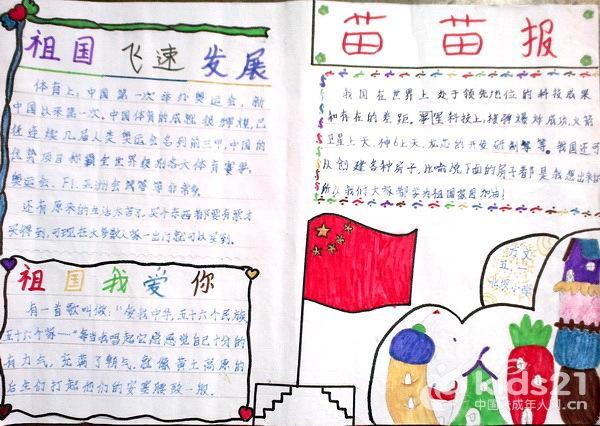 祖国飞速发展
体育上,中国第一次举办奥运会,新
中国以来第一次。中国体育的成就很辉煌,已
往连续几届人类奥运会名列前三甲,中国的
优势项目称霸全世界级别各大体育赛事,
奥运会、F1、亚洲会风等等非常多。
还有原来的生活太苦了,买个东西都要有票才
买得到,可现在大多数人家一出门就可以买到。
祖国我爱你
有一首歌叫做:“爱我中华,五十六个民族
五十六个家……”每当我唱起它总感觉自己十分的
有力气,充满了朝气,就像黄土高原的
后生们打起他们的安塞腰鼓一般。
苗苗报
我国在世界上处于领先地位的科技成果
和存在的差距。科技上,核弹爆炸成功,火箭
卫星上天、神6上天、龙芯的开发研制等等。我国还可
以创建各种房子,比如说下面的房子都是我想出来的
所以我们大家都学为祖国家园加油!
五、一
kids21
中国未成年人网.cn